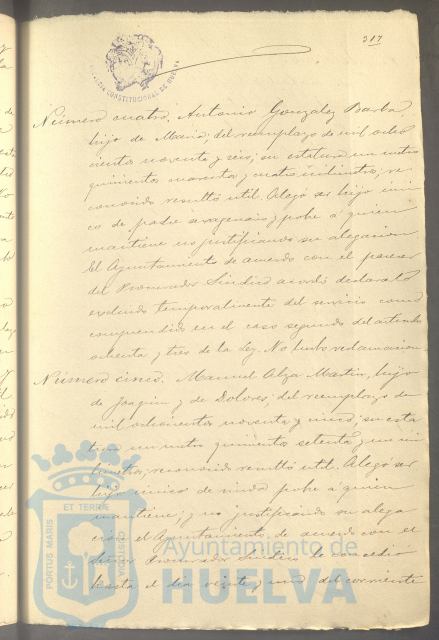 317
ALCALDIA CONSTITUCIONAL DE HUELVA
Número cuatro, Antonio Gonzalez Barba
hijo de Maria del reemplazo de mil ocho
cientos noventa y seis; su estatura un metro
quinientos noventa y cuatro milimetros; re
conocido resultó util. Alegó ser hijo uni
co de padre sexagenario y pobre á quien
mantiene no justificando su alegacion
El Ayuntamiento de acuerdo con el parecer
del Procurador Sindico acordó declararlo
excluido temporalmente del servicio como
comprendido en el caso segundo del articulo
ochenta y tres de la ley. No hubo reclamacion
Número cinco. Manuel Martin, hijo
de Joaquin y de Dolores; del reemplazo de
mil ochocientos noventa y cinco; su esta
tura un metro quinientos setenta y un mi
limetros; reconocido resultó util. Alegó ser
hijo unico de viuda pobre á quien
mantiene, y no justificando su alega
cion el Ayuntamiento de acuerdo con el
Señor Procurador Sindico le concedió
hasta el dia veinte y uno del corriente
PORTUS MARIS
ET TERRE
CUSTODIA
Ayuntamiento de
HUELVA